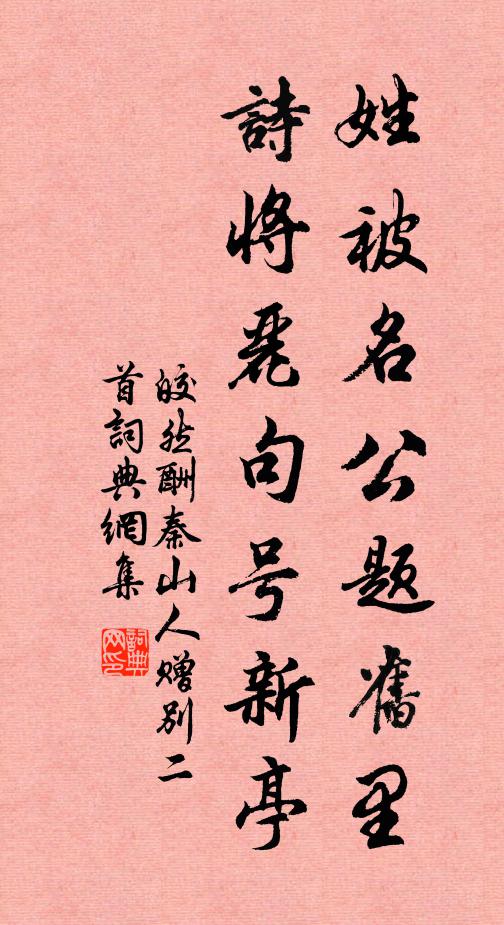 姓被名公題舊里
詩將麗句号新亭
皎然酬秦山人贈別二
首詞典網集
詞典网印